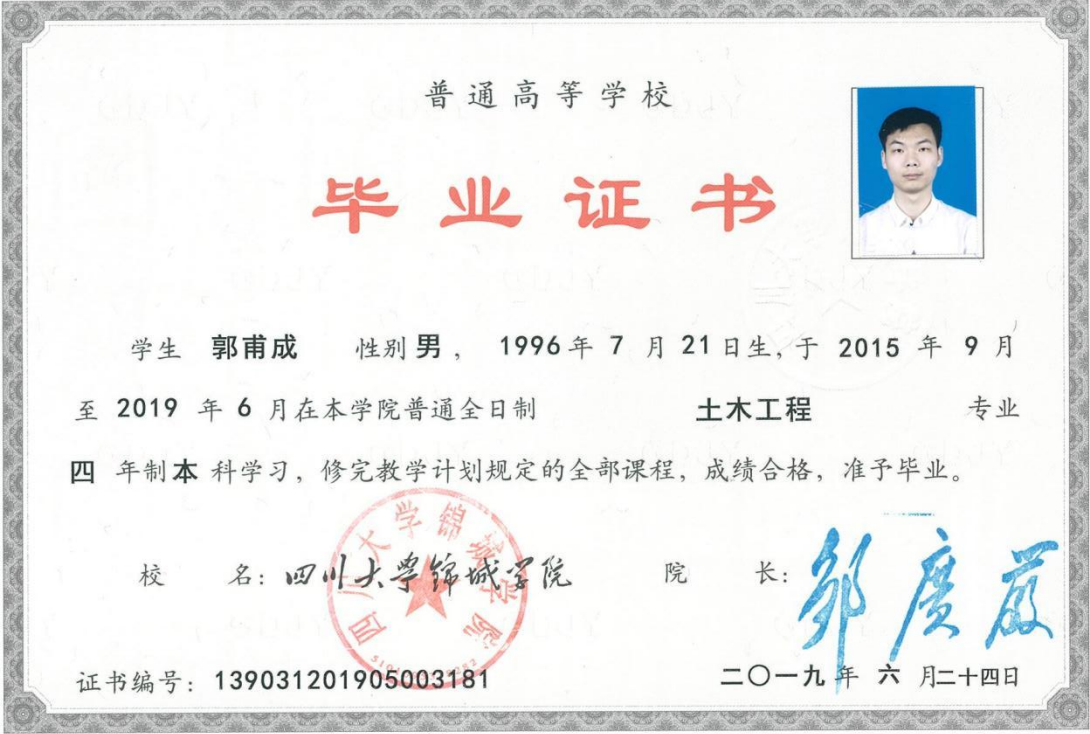 普通高等学校
毕业证书
学生 郭甫成 性别 男, 1996 年 7 月 21 日生, 于 2015 年 9 月
至 2019 年 6 月在本学院普通全日制 土木工程 专业
四 年制 本 科学习, 修完教学计划规定的全部课程, 成绩合格, 准予毕业。
校 名: 四川大学锦城学院 院 长: 邹广严
四川大学锦城学院
证书编号: 139031201905003181 二〇一九 年 六 月二十四日